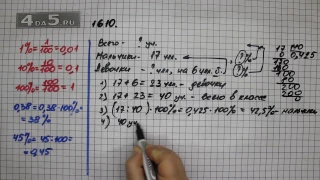 4да5.ру
1610.
1% = 1/100 = 0,01
10% = 10/100 = 0,1
100% = 100/100 = 1
0,38 = 0,38·100% =
= 38%
45% = 45:100 =
= 0,45
Всего - ? уч.
Мальчики - 17 уч.
Девочки - ? уч., на 6 уч. б.
? %
? %
1) 17 + 6 = 23 уч. - девочки
2) 17 + 23 = 40 уч. - всего в классе
3) (17 : 40) · 100% = 0,425 · 100% = 42,5% - мальчики
4) 40 уч
17 40
0 0,425